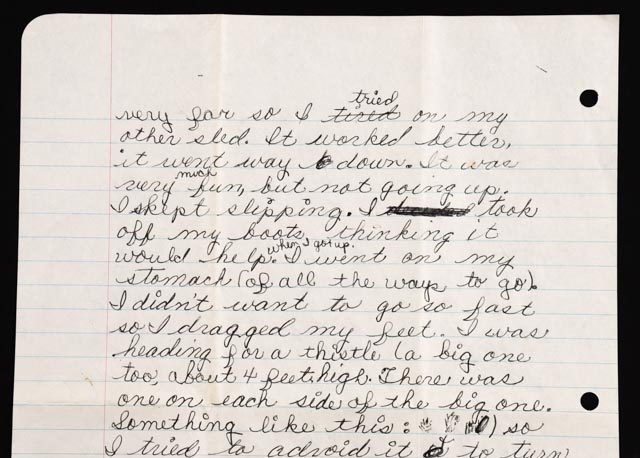 very far so I tired tried on my
other sled. It worked better,
it went way down. It was
very much fun, but not going up.
I skept slipping. I took
off my boots, thinking it
would help. when I got up. I went on my
stomach (of all the ways to go).
I didn't want to go so fast
so I dragged my feet. I was
heading for a thistle (a big one
too, about 4 feet, high. There was
one on each side of the big one.
Something like this: ) so
I tried to advoid it to turn